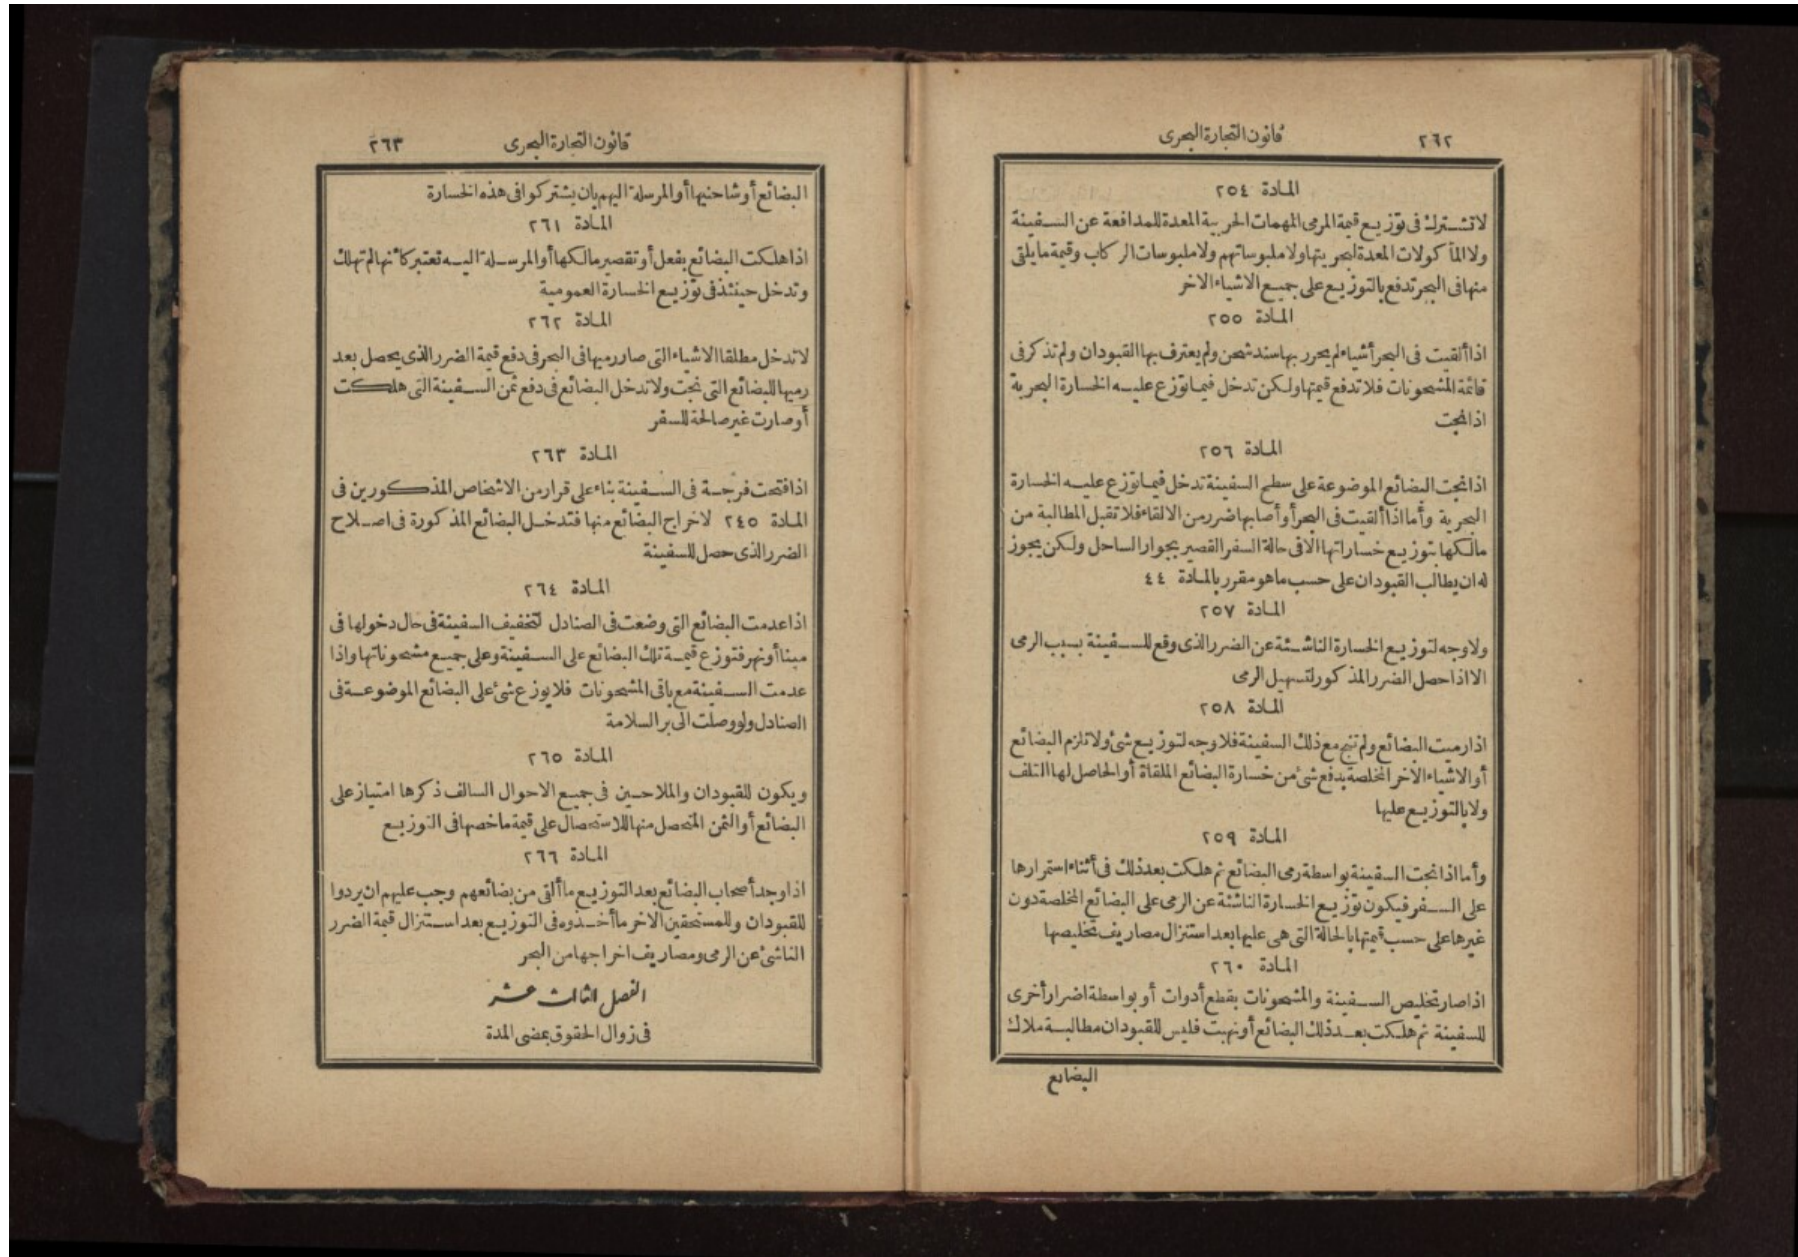 ٢٦٢
قانون التجارة البحرى
المادة ٢٥٤
لا تشترك فى توزيع قيمة المرمى المهمات الحربية المعدة للمدافعة عن السفينة
ولا المأكولات المعدة لبحريتها ولا ملبوساتهم ولا ملبوسات الركاب وقيمة ما يلقى
منها فى البحر تدفع بالتوزيع على جميع الاشياء الاخر
المادة ٢٥٥
اذا ألقيت فى البحر أشياء لم يحرر بها سند شحن ولم يعترف بها القبودان ولم تذكر فى
قائمة المشحونات فلا تدفع قيمتها ولكن تدخل فيما توزع عليه الخسارة البحرية
اذا نجت
المادة ٢٥٦
اذا نجت البضائع الموضوعة على سطح السفينة تدخل فيما توزع عليه الخسارة
البحرية وأما اذا ألقيت فى البحر أو أصابها ضرر من الالقاء فلا تقبل المطالبة من
مالكها بتوزيع خساراتها الا فى حالة السفر القصير بجوار الساحل ولكن يجوز
له ان يطالب القبودان على حسب ما هو مقرر بالمادة ٤٤
المادة ٢٥٧
ولا وجه لتوزيع الخسارة الناشئة عن الضرر الذى وقع للسفينة بسبب الرمى
الا اذا حصل الضرر المذكور لتسهيل الرمى
المادة ٢٥٨
اذا رميت البضائع ولم تنج مع ذلك السفينة فلا وجه لتوزيع شئ ولا تلزم البضائع
أو الاشياء الاخر المخلصة بدفع شئ من خسارة البضائع الملقاة أو الحاصل لها التلف
ولا بالتوزيع عليها
المادة ٢٥٩
وأما اذا نجت السفينة بواسطة رمى البضائع ثم هلكت بعد ذلك فى أثناء استمرارها
على السفر فيكون توزيع الخسارة الناشئة عن الرمى على البضائع المخلصة دون
غيرها على حسب قيمتها بالحالة التى هى عليها بعد استنزال مصاريف تخليصها
المادة ٢٦٠
اذا صار تخليص السفينة والمشحونات بقطع أدوات أو بواسطة اضرار أخرى
للسفينة ثم هلكت بعد ذلك البضائع أو نهبت فليس للقبودان مطالبة ملاك
البضايع
قانون التجارة البحرى
٢٦٣
البضائع أو شاحنيها أو المرسلة اليهم بان يشتركوا فى هذه الخسارة
المادة ٢٦١
اذا هلكت البضائع بفعل أو تقصير مالكها أو المرسلة اليه تعتبر كأنها لم تهلك
وتدخل حينئذ فى توزيع الخسارة العمومية
المادة ٢٦٢
لا تدخل مطلقا الاشياء التى صار رميها فى البحر فى دفع قيمة الضرر الذى يحصل بعد
رميها للبضائع التى نجت ولا تدخل البضائع فى دفع ثمن السفينة التى هلكت
أو صارت غير صالحة للسفر
المادة ٢٦٣
اذا فتحت فرجة فى السفينة بناء على قرار من الاشخاص المذكورين فى
المادة ٢٤٥ لاخراج البضائع منها فتدخل البضائع المذكورة فى اصلاح
الضرر الذى حصل للسفينة
المادة ٢٦٤
اذا عدمت البضائع التى وضعت فى الصنادل لتخفيف السفينة فى حال دخولها فى
مينا أو نهر فتوزع قيمة تلك البضائع على السفينة وعلى جميع مشحوناتها واذا
عدمت السفينة مع باقى المشحونات فلا يوزع شئ على البضائع الموضوعة فى
الصنادل ولو وصلت الى بر السلامة
المادة ٢٦٥
ويكون للقبودان والملاحين فى جميع الاحوال السالف ذكرها امتياز على
البضائع أو الثمن المتحصل منها للاستحصال على قيمة ما خصها فى التوزيع
المادة ٢٦٦
اذا وجد أصحاب البضائع بعد التوزيع ما ألقى من بضائعهم وجب عليهم ان يردوا
للقبودان وللمستحقين الاخر ما أخذوه فى التوزيع بعد استنزال قيمة الضرر
الناشئ عن الرمى ومصاريف اخراجها من البحر
الفصل الثالث عشر
فى زوال الحقوق بمضى المدة